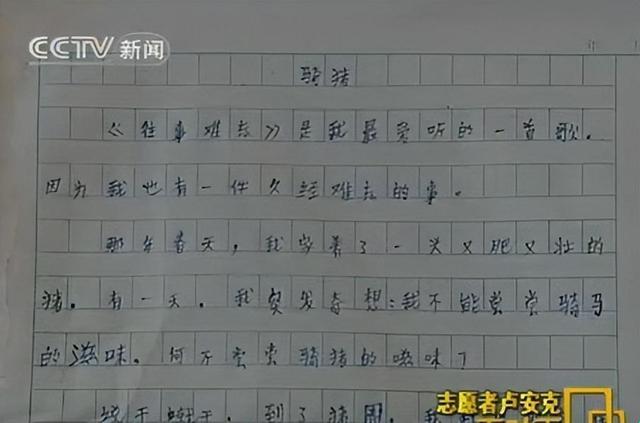 CCTV 新闻
骑猪
《往事难忘》是我最爱听的一首歌。
因为我也有一件久经难忘的事。
那年春天，我家养了一头又肥又壮的
猪。有一天，我突发奇想：我不能尝尝骑马
的滋味，何不尝尝骑猪的滋味？
说干就干，到了猪圈，我
志愿者卢安克